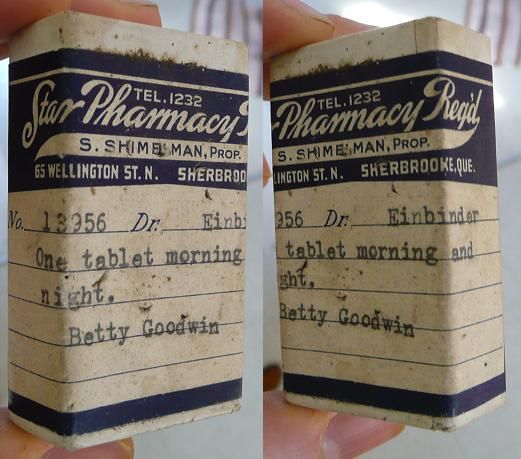 Star Pharmacy
TEL.1232
S. SHIME MAN, PROP.
65 WELLINGTON ST. N. SHERBROO
No. 13956 Dr. Einbi
One tablet morning
night.
Betty Goodwin
Pharmacy Reg'd
TEL.1232
S. SHIME MAN, PROP.
LINGTON ST. N. SHERBROOKE, QUE.
956 Dr. Einbinder
tablet morning and
ght.
Betty Goodwin